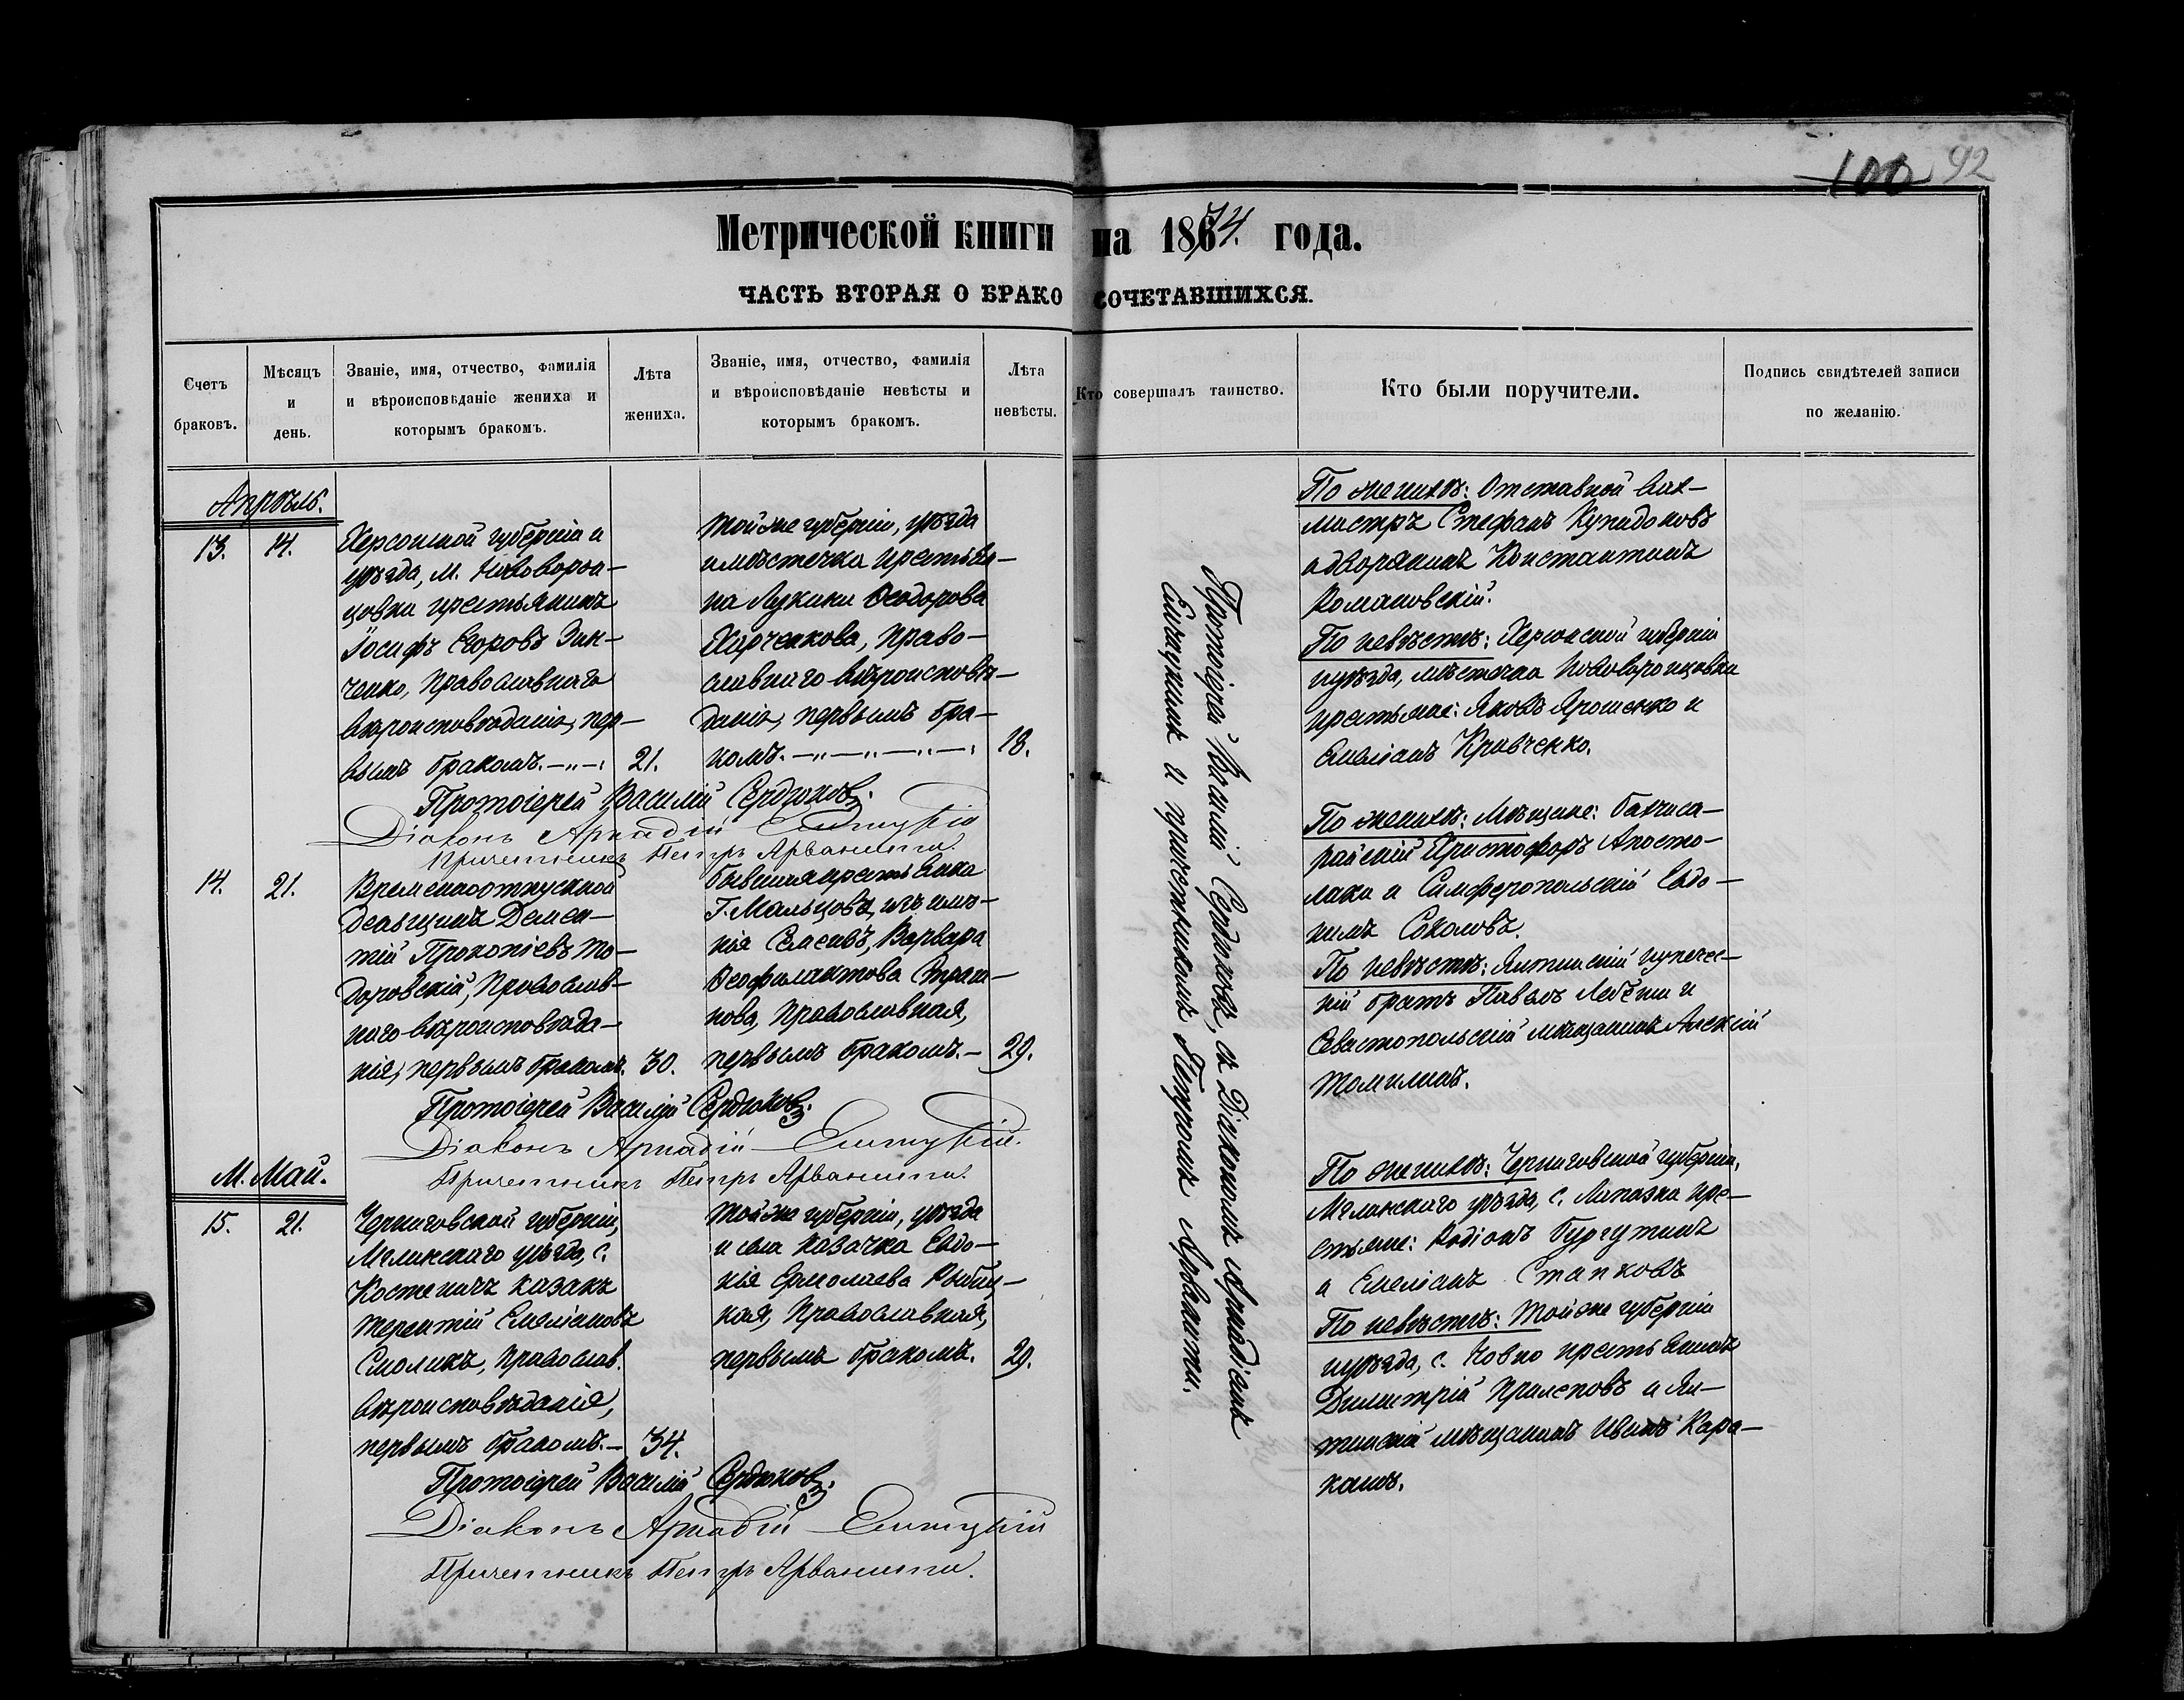 100 92
Метрической книги на 1874. года.
ЧАСТЬ ВТОРАЯ О БРАКОСОЧЕТАВШИХСЯ.
Счетъ
браковъ.
Мѣсяцъ
и
день.
Званіе, имя, отчество, фамилія
и вѣроисповѣданіе жениха и
которымъ бракомъ.
Лѣта
жениха.
Званіе, имя, отчество, фамилія
и вѣроисповѣданіе невѣсты и
которымъ бракомъ.
Лѣта
невѣсты.
Кто совершалъ таинство.
Кто были поручители.
Подпись свидѣтелей записи
по желанію.
Апрѣль.
13. 14.
Херсонской губерніи и
уѣзда, м. Нововорон-
цовки крестьянинъ
Іосифъ Егоровъ Зин-
ченко, Православнаго
вѣроисповѣданія, пер-
вымъ бракомъ.
21.
Тойже губерніи, уѣзда
и мѣстечка крестьян-
ка Лукина Ѳеодорова
Харченкова, Право-
славнаго вѣроисповѣ-
данія, первымъ бра-
комъ.
18.
Протоіерей Василій Сердюковъ, съ Діакономъ Аркадіемъ
и причетникомъ Петромъ Арванити.
По женихѣ: Отставной вах-
мистръ Стефанъ Купидоновъ
и дворянинъ Константинъ
Романовскій.
По невѣстѣ: Херсонской губерніи
и уѣзда, мѣстечка Нововоронцовки
крестьяне: Яковъ Ярошенко и
Емеліанъ Кравченко.
Протоіерей Василій Сердюковъ.
Діаконъ Аркадій
Причетникъ Петръ Арванити.
14. 21.
Временноотпускной
деньщикъ Демен-
тій Прокопіевъ То-
доровскій, Православ-
наго вѣроисповѣда-
нія, первымъ бракомъ.
30.
Бывшая крестьянка
Г. Мальцова, изъ имѣ-
нія Симеизъ, Варвара
Ѳеофилактова
Православная,
первымъ бракомъ.
29.
По женихѣ: Мѣщане: бахчиса-
райскій Христофоръ Апосто-
лаки и Симферопольскій Евдо-
кимъ Соколовъ.
По невѣстѣ: Ялтинскій купечес-
кій братъ Павелъ и
Севастопольскій мѣщанинъ Алексій
Томилинъ.
Протоіерей Василій Сердюковъ.
Діаконъ Аркадій
Причетникъ Петръ Арванити.
М. Май.
15. 21.
Черниговской губерніи,
Мглинскаго уѣзда, с.
Костеничъ казакъ
Терентій Емеліановъ
Смоликъ, Православ.
вѣроисповѣданія,
первымъ бракомъ.
34.
Тойже губерніи, уѣзда
и села казачка Евдо-
кія Ермолаева
Православная,
первымъ бракомъ.
29.
По женихѣ: Черниговской губерніи,
Мглинскаго уѣзда, с. кре-
стьяне: Родіонъ Бургутинъ
и Емеліанъ Стапковъ
По невѣстѣ: Тойже губерніи
и уѣзда, с. крестьянинъ
Димитрій Прилеповъ и Ял-
тинскій мѣщанинъ Иванъ Кара-
кашъ.
Протоіерей Василій Сердюковъ.
Діаконъ Аркадій
Причетникъ Петръ Арванити.